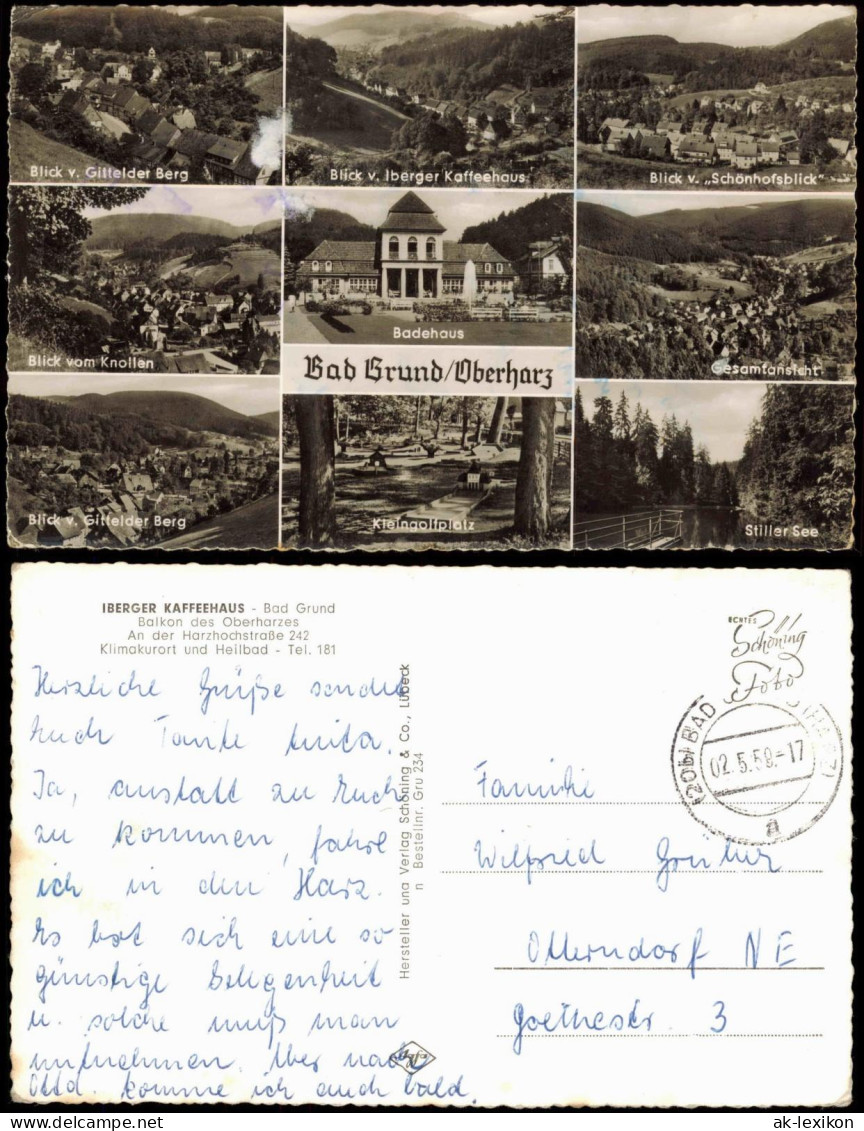 Blick v. Gittelder Berg
Blick v. Iberger Kaffeehaus
Blick v. „Schönhofsblick"
Blick vom Knollen
Badehaus
Gesamtansicht
Bad Grund/Oberharz
Blick v. Gittelder Berg
Kleingolfplatz
Stiller See
IBERGER KAFFEEHAUS - Bad Grund
Balkon des Oberharzes
An der Harzhochstraße 242
Klimakurort und Heilbad - Tel. 181
Herzliche Grüße sendet
Euch Tante Anita.
Ja, anstatt zu Euch
zu kommen, fahre
ich in den Harz.
Es bot sich eine so
günstige Gelegenheit
u. solche muß man
mitnehmen. Aber nach
Otto. komme ich auch bald.
Hersteller und Verlag Schöning & Co., Lübeck
n Bestellnr. Gru 234
Agfa
ECHTES
Schöning
Foto
(20b) BAD (HARZ)
02.5.59.-17
a
Familie
Wilfried
Otterndorf NE
Goethestr. 3
ak-lexikon